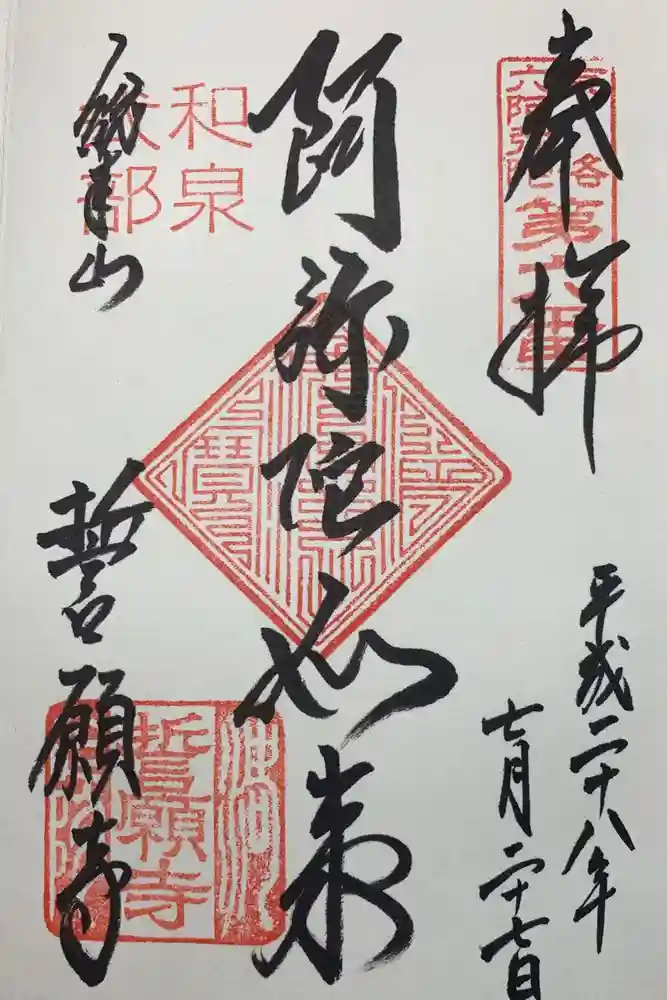 奉拝
六阿弥陀
第六番
平成二十八年
七月二十七日
阿弥陀如来
和泉
式部
総本山
誓願寺
誓願寺